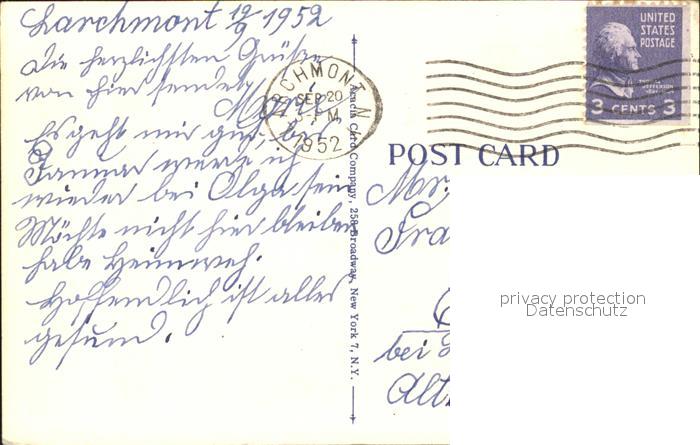 Larchmont 19/9 1952
Die herzlichsten Grüße
von hier sendet
Es geht mir gut, bis
Januar werde ich
wieder bei Olga sein
Möchte nicht hier bleiben
habe Heimweh.
Hoffendlich ist alles
gesund.
Acacia Card Company, 258 Broadway, New York 7, N.Y.
LARCHMONT N.Y.
SEP 20
PM
1952
UNITED
STATES
POSTAGE
THOMAS
JEFFERSON
3 CENTS 3
POST CARD
Mr.
Fra
bei
Alt
privacy protection
Datenschutz